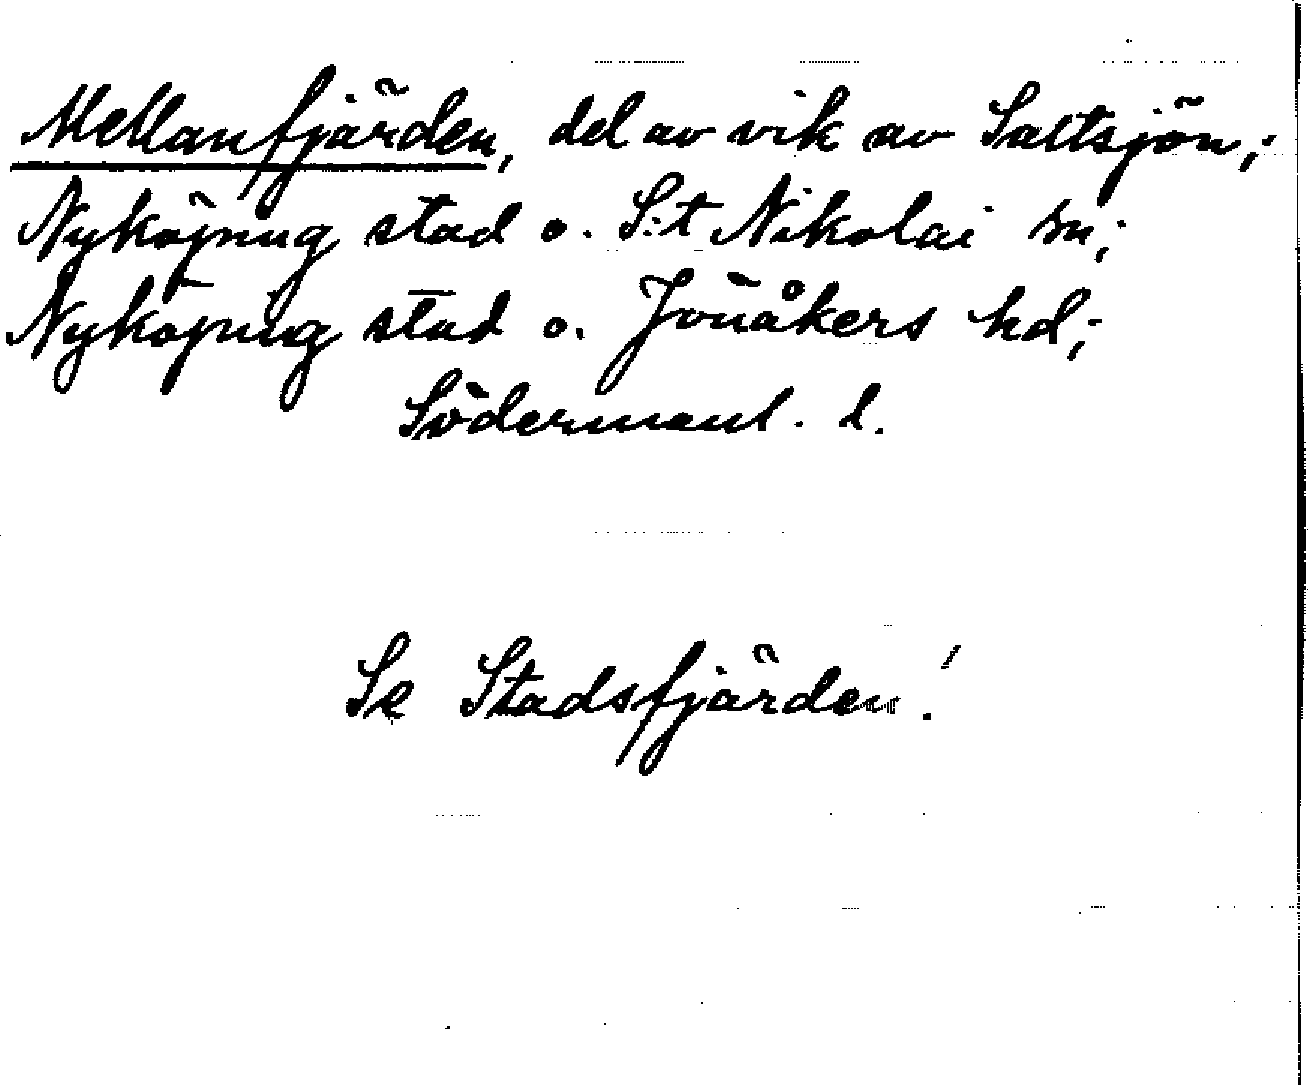 Mellanfjärden, del av vik av Saltsjön;
Nyköping stad o. S:t Nikolai sn;
Nyköping stad o. Jönåkers hd;
Södermanl. l.
Se Stadsfjärden!